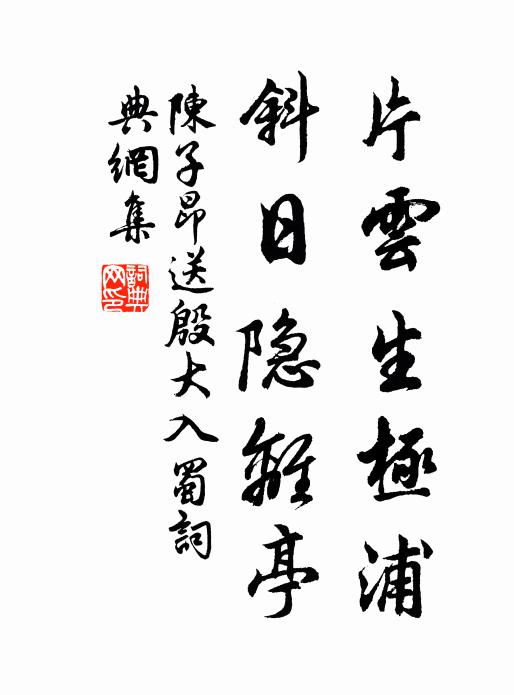 片雲生極浦
斜日隐離亭
陳子昂送殷大入蜀詞
典網集
詞典网印